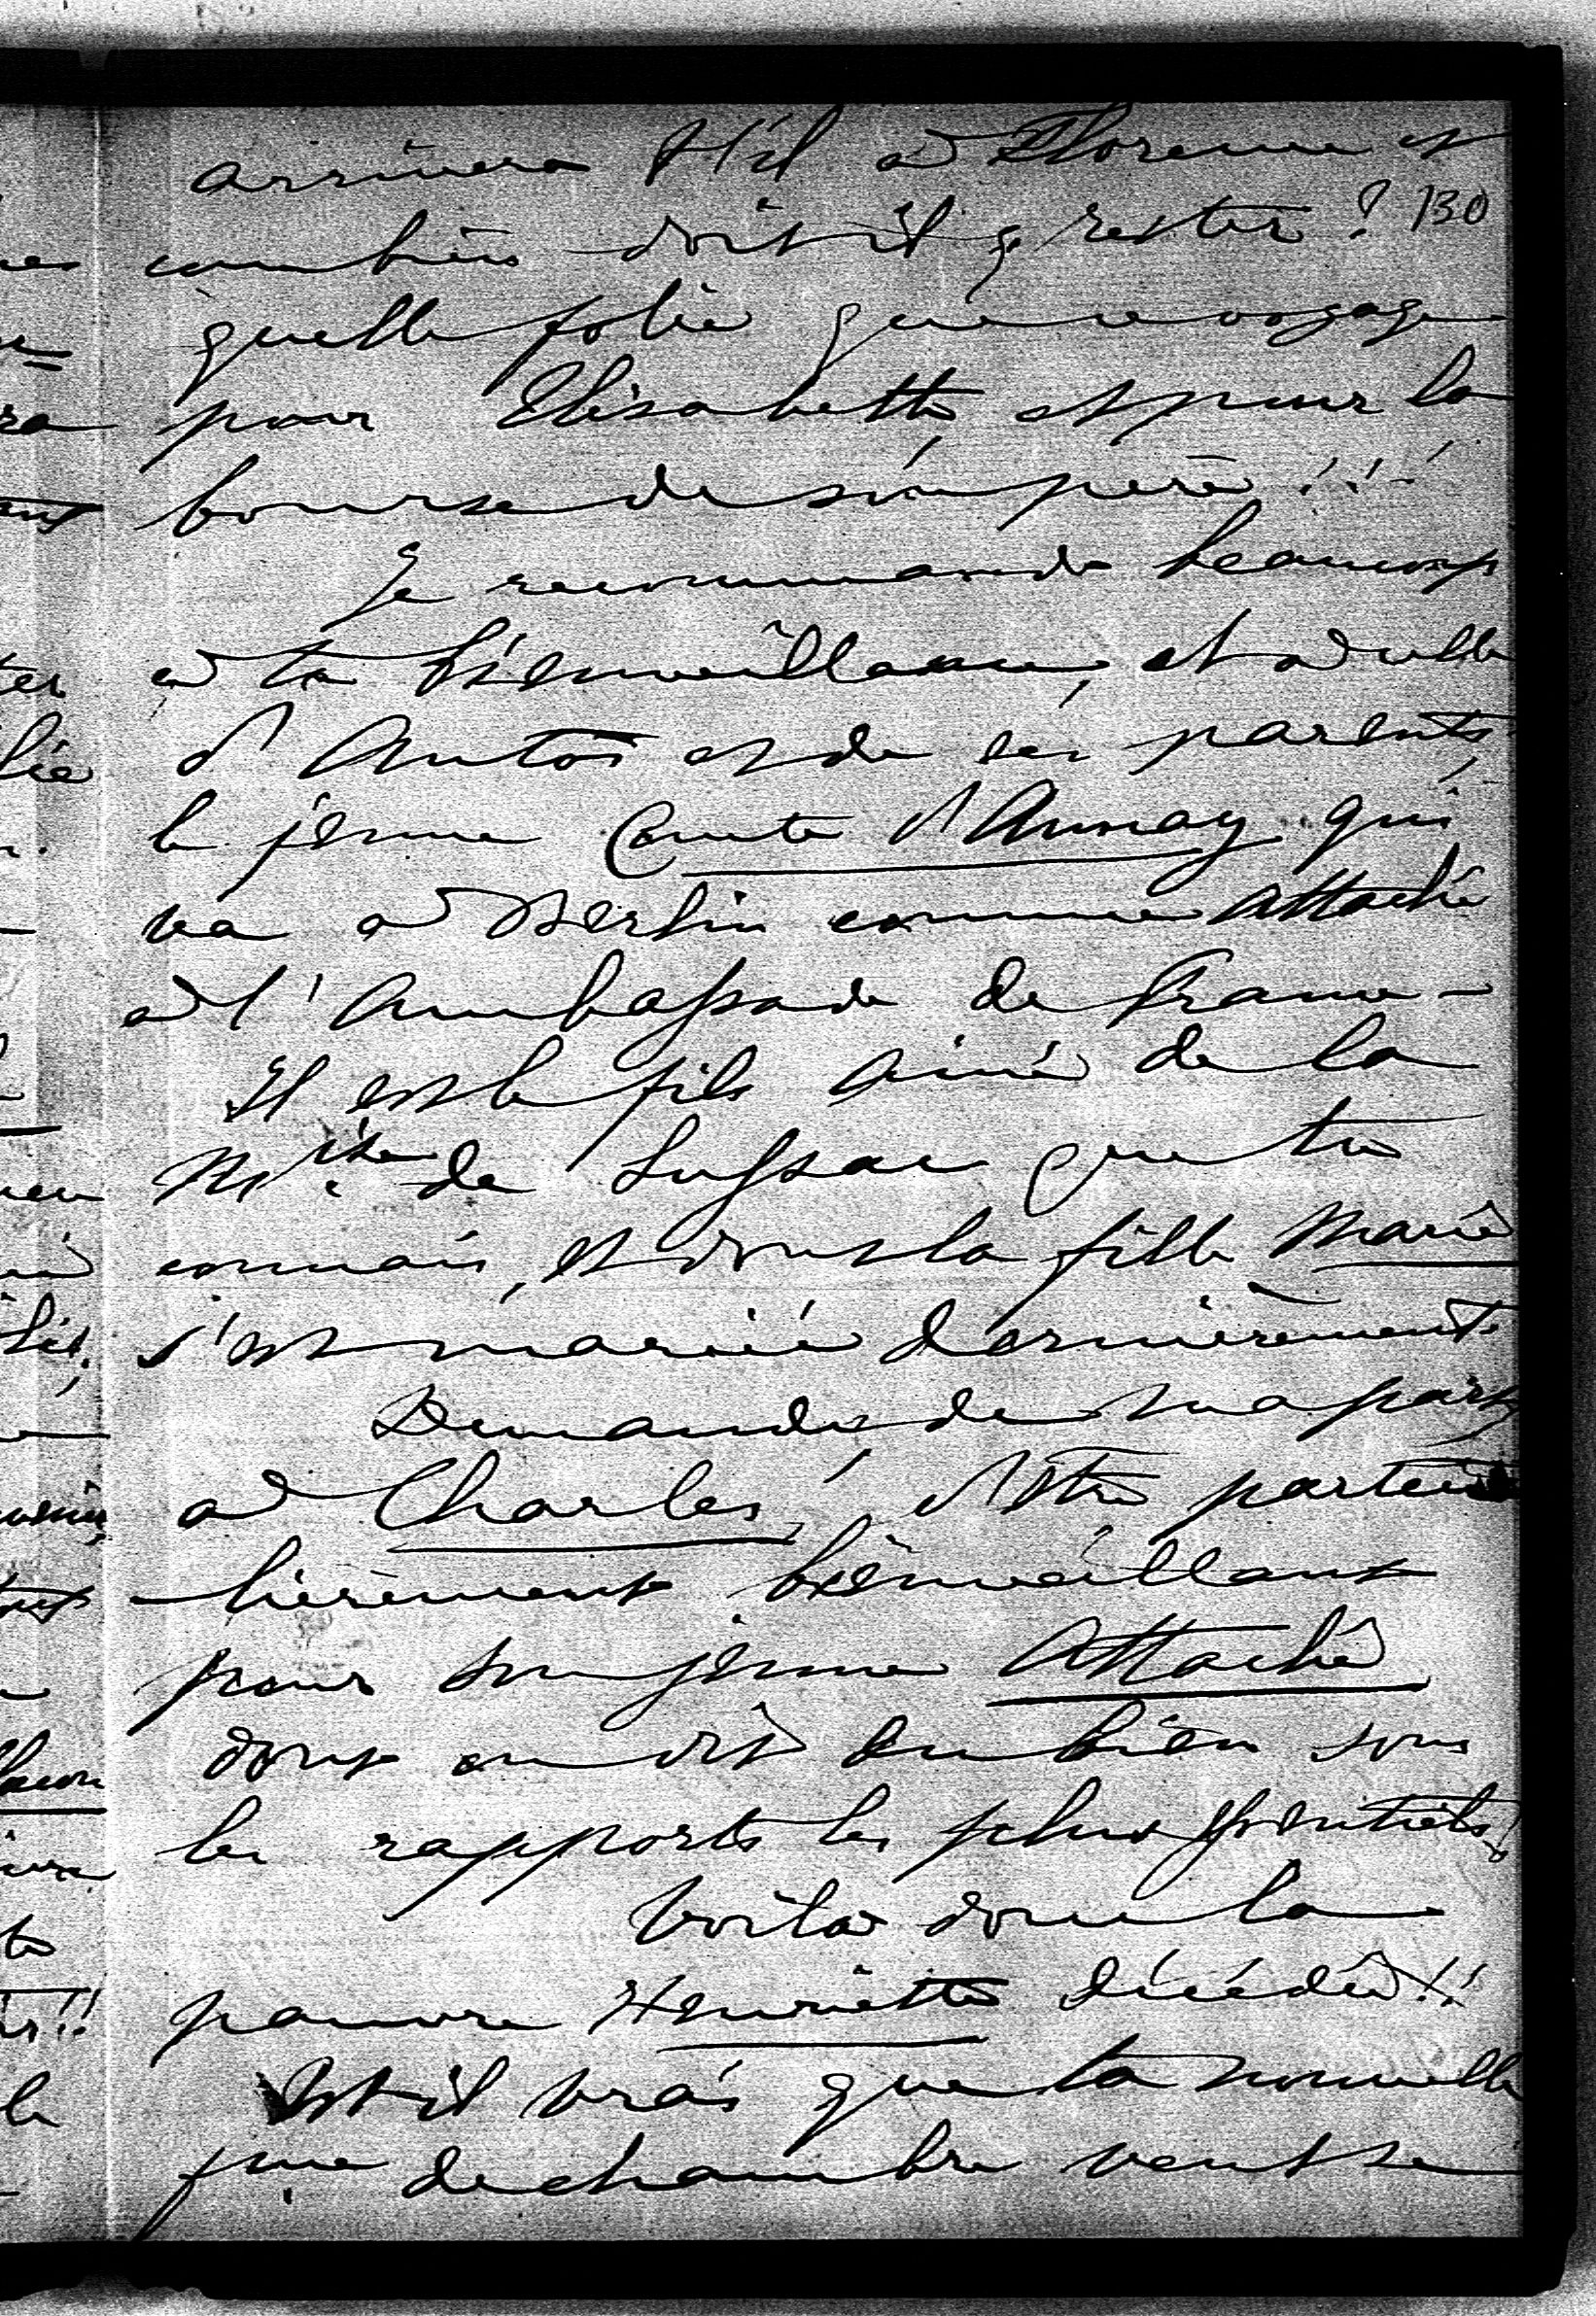 arrivera t-il à Florence et
130
combien doit il y rester?
quelle folie que ce voyage
pour Elisabeth, et pour la
bourse de son père!!!
Je recommande beaucoup
à ta bienveillance, et à celle
d'Anton et de ses parents
le jeune Comte d'Aunay qui
va à Berlin comme attaché
à l'Ambassade de France -
Il est le fils ainé de la
Mise de Lussac que tu
connais, et dont la fille Marie
s'est mariée dernièrement
Demande de ma part
à Charles, d'être particu
-lièrement bienveillant
pour son jeune Attaché
dont on dit du bien sous
les rapports les plus essentiels!
Voilà donc la
pauvre Henriette décédée!!
Est-il vrai que ta nouvelle
fme de chambre veut se